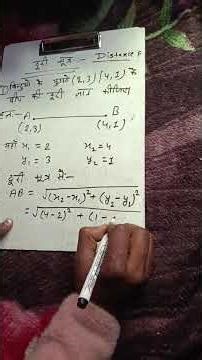 दूरी सूत्र :- Distance F
① बिन्दुओं के युग्मों (2,3) (4,1) के
बीच की दूरी ज्ञात कीजिए
हल:- A B
(2,3) (4,1)
यहाँ x₁ = 2 x₂ = 4
y₁ = 3 y₂ = 1
दूरी सूत्र से:-
AB = √(x₂-x₁)² + (y₂-y₁)²
= √(4-2)² + (1-